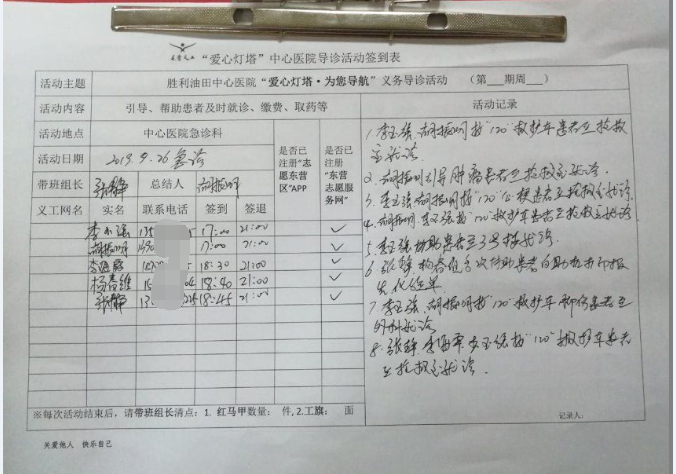 关爱他人
“爱心灯塔”中心医院导诊活动签到表
活动主题 胜利油田中心医院“爱心灯塔·为您导航”义务导诊活动 （第 期周 ）
活动内容 引导、帮助患者及时就诊、缴费、取药等 活动记录
活动地点 中心医院急诊科 是否已注册“志愿东营区”APP 是否已注册“东营志愿服务网”
活动日期 2019.9.26 急诊
带班组长 张静 总结人 胡振明
义工网名 实名 联系电话 签到 签退
17:00 21:00 ✓
胡振明 17:00 21:00 ✓
18:30 21:00 ✓
杨春维 18:40 21:00 ✓
张静 18:45 21:00 ✓
1. 李玉强、胡振明接“120”救护车患者至抢救室就诊.
2. 胡振明引导肿瘤患者至抢救室就诊.
3. 李玉强胡振明接“120”患者至抢救室就诊.
4. 胡振明、李玉强接“120”救护车患者至抢救室就诊
5. 李玉强协助患者至3号楼就诊.
6. 张静 杨春维多次协助患者自助机打印报
告化验单.
7. 李玉强、胡振明接“120”救护车 患者至
外科就诊
8. 张静 李玉强接“120”救护车患者
至抢救室就诊.
※每次活动结束后，请带班组长清点：1. 红马甲数量： 件, 2.工旗： 面 记录人：
关爱他人 快乐自己